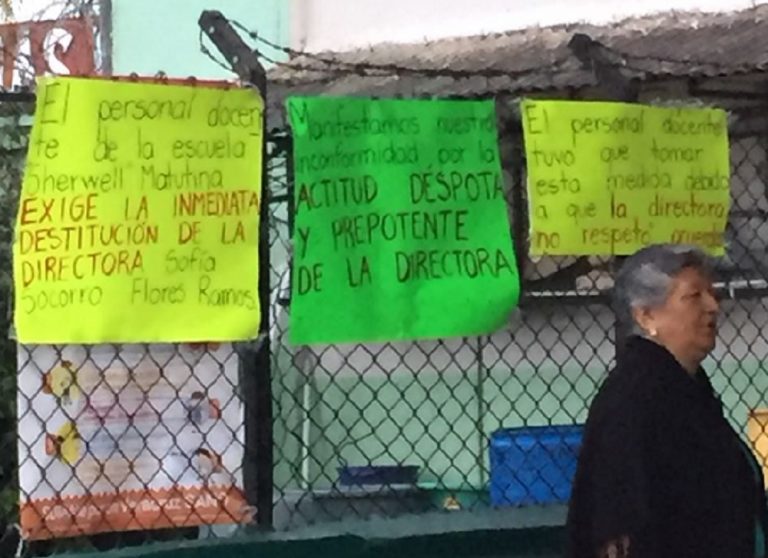 El personal docen
te de la escuela
Sherwell Matutina
EXIGE LA INMEDIATA
DESTITUCIÓN DE LA
DIRECTORA Sofía
Socorro Flores Ramos
Manifestamos nuestra
inconformidad por la
ACTITUD DÉSPOTA
Y PREPOTENTE
DE LA DIRECTORA
El personal docente
tuvo que tomar
esta medida debido
a que la directora
no respetó